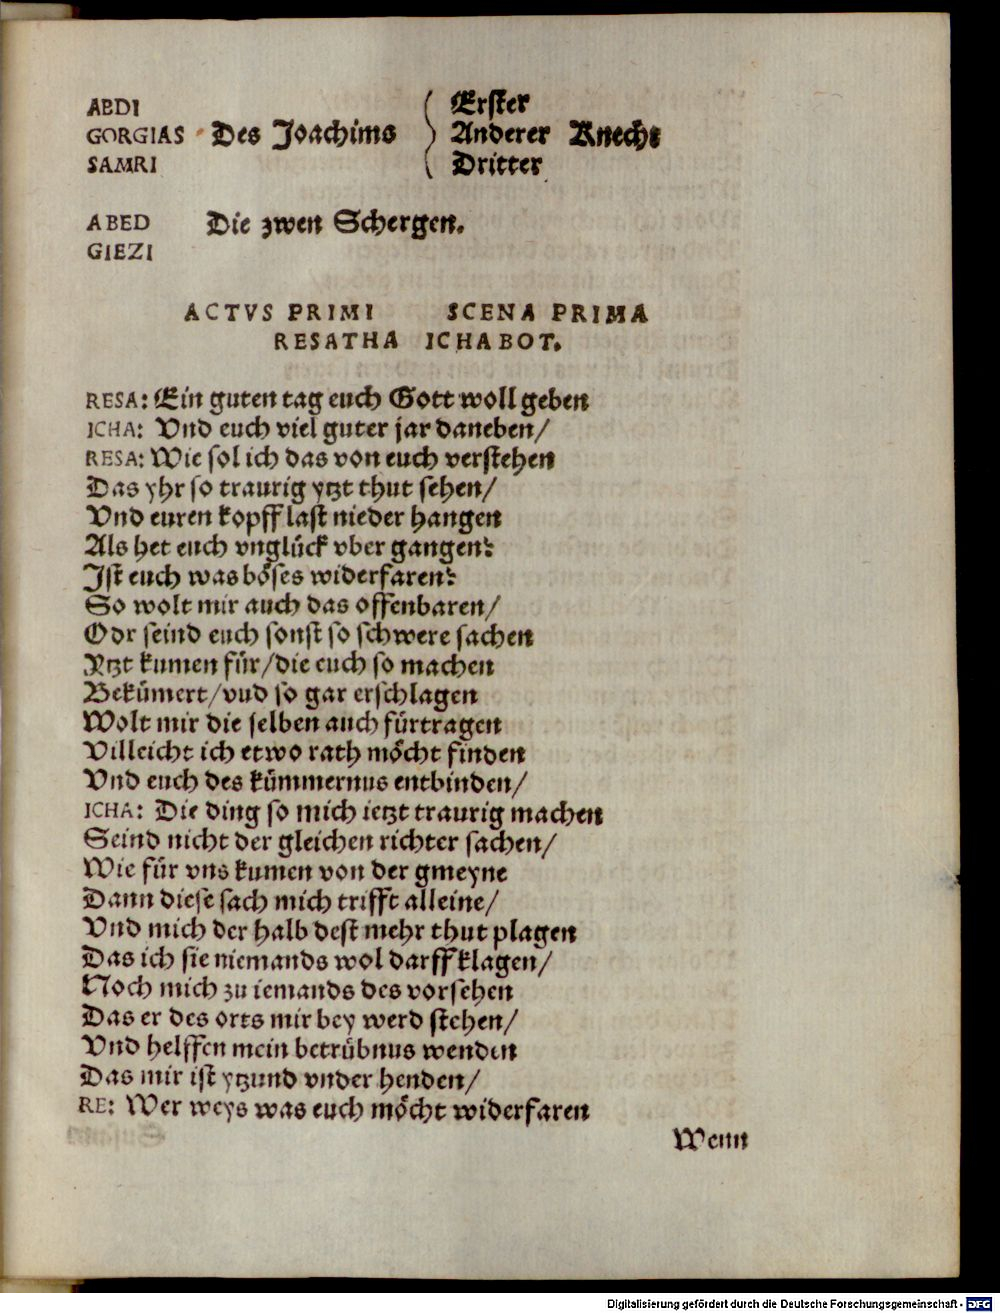 ABDI Erster
GORGIAS Des Joachims Anderer Knecht
SAMRI Dritter
ABED Die zwen Schergen.
GIEZI
ACTVS PRIMI SCENA PRIMA
RESATHA ICHABOT.
RESA: Ein guten tag euch Gott woll geben
ICHA: Vnd euch viel guter jar daneben/
RESA: Wie sol ich das von euch verstehen
Das yhr so traurig ytzt thut sehen/
Vnd euren kopff last nieder hangen
Als het euch vnglück vber gangen?
Ist euch was böses widerfaren?
So wolt mir auch das offenbaren/
Odr seind euch sonst so schwere sachen
Ytzt kumen für/die euch so machen
Bekümert/vnd so gar erschlagen
Wolt mir die selben auch fürtragen
Villeicht ich etwo rath möcht finden
Vnd euch des kümmernus entbinden/
ICHA: Die ding so mich ietzt traurig machen
Seind nicht der gleichen richter sachen/
Wie für vns kumen von der gmeyne
Dann diese sach mich trifft alleine/
Vnd mich der halb dest mehr thut plagen
Das ich sie niemands wol darff klagen/
Noch mich zu iemands des vorsehen
Das er des orts mir bey werd stehen/
Vnd helffen mein betrübnus wenden
Das mir ist ytzund vnder henden/
RE: Wer weys was euch möcht widerfaren
Wenn
Digitalisierung gefördert durch die Deutsche Forschungsgemeinschaft - DFG